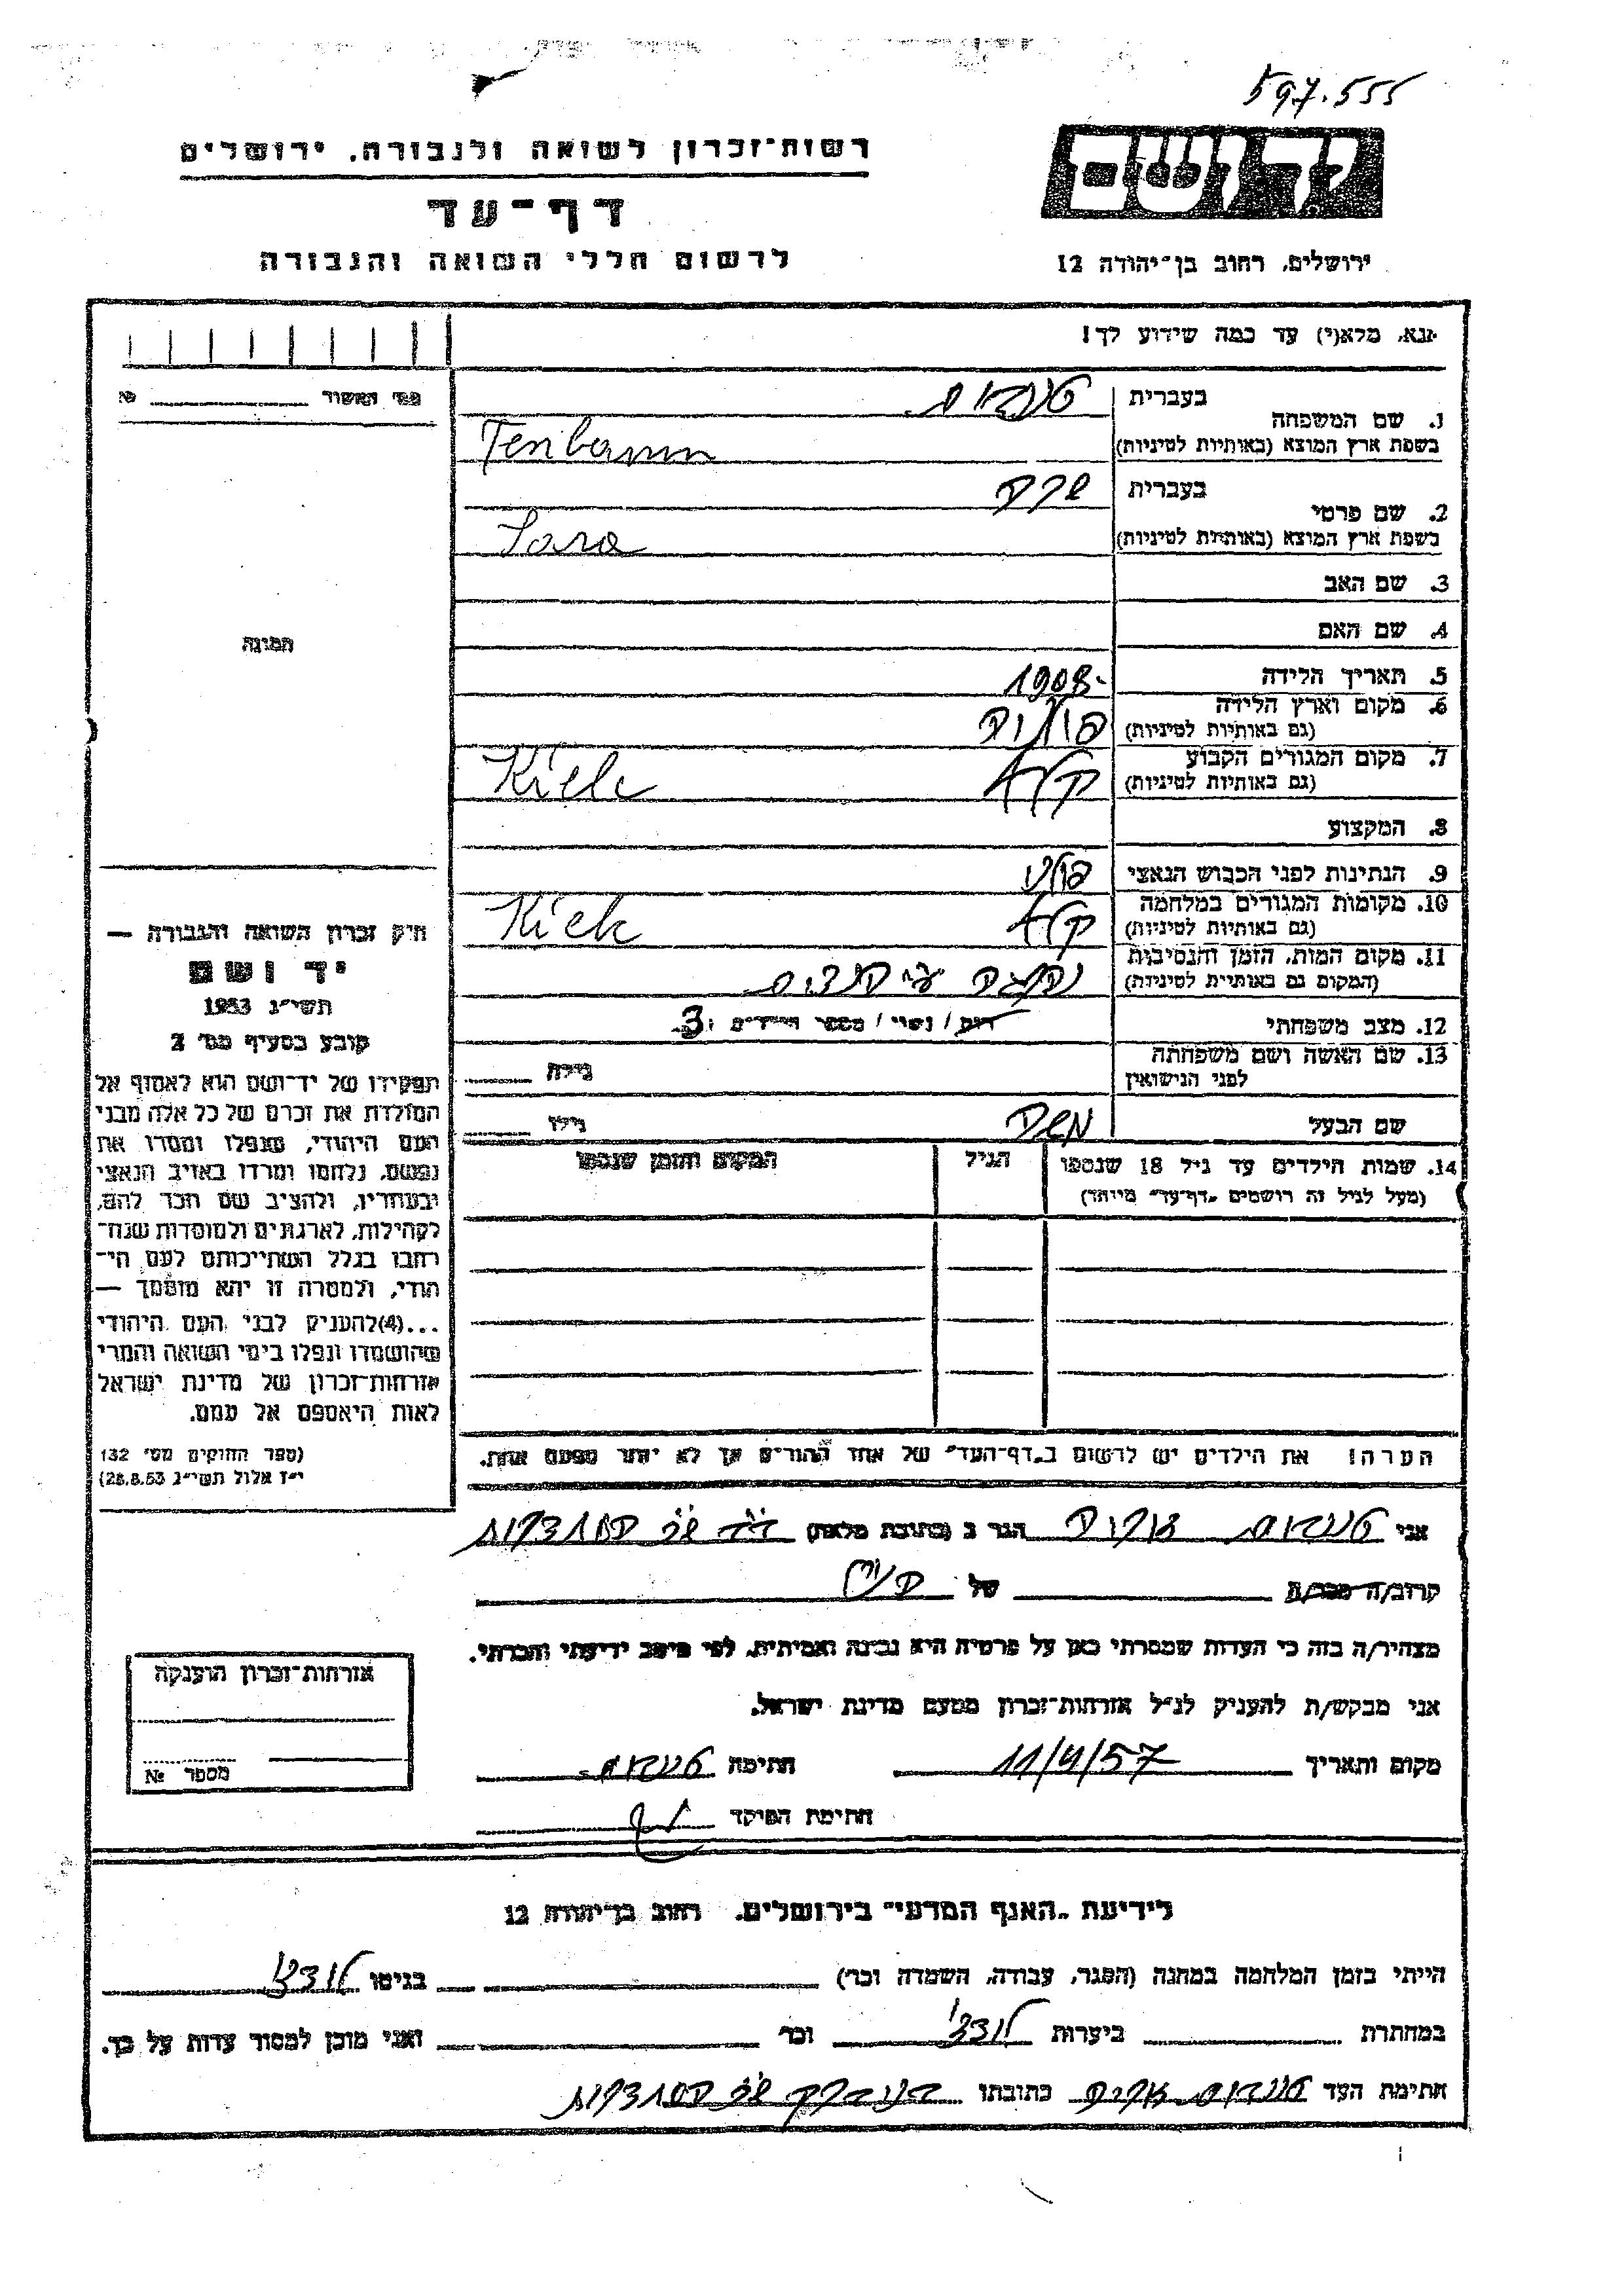 597.555
יד ושם
רשות־זכרון לשואה ולגבורה, ירושלים
דף־עד
לרשום חללי השואה והגבורה
ירושלים, רחוב בן־יהודה 12
נא, מלא(י) עד כמה שידוע לך!
מס׳ האשור №
1. שם המשפחה
בעברית טננבוים
בשפת ארץ המוצא (באותיות לטיניות) Tenbaum
2. שם פרטי
בעברית שרה
בשפת ארץ המוצא (באותיות לטיניות) Sara
3. שם האב
4. שם האם
תמונה
5. תאריך הלידה 1908-
6. מקום וארץ הלידה
(גם באותיות לטיניות) פולניה
7. מקום המגורים הקבוע
(גם באותיות לטיניות) קלץ Kielc
8. המקצוע
9. הנתינות לפני הכבוש הנאצי פולני
10. מקומות המגורים במלחמה
(גם באותיות לטיניות) קלץ Kielc
11. מקום המות, הזמן והנסיבות
(המקום גם באותיות לטיניות) נהרגה ע״י
12. מצב משפחתי רווק / נשוי / מספר הילדים 3
13. שם האשה ושם משפחתה
לפני הנישואין גילה
שם הבעל משה גילו
14. שמות הילדים עד גיל 18 שנספו הגיל המקום והזמן שנספו
(מעל לגיל זה רושמים „דף־עד״ מיוחד)
הערה! את הילדים יש לרשום ב„דף־העד״ של אחד ההורים אך לא יותר מפעם אחת.
חוק זכרון השואה והגבורה —
יד ושם
תשי״ג 1953
קובע בסעיף מס׳ 2
תפקידו של יד־ושם הוא לאסוף אל
המולדת את זכרם של כל אלה מבני
העם היהודי, שנפלו ומסרו את
נפשם, נלחמו ומרדו באויב הנאצי
ובעוזריו, ולהציב שם וזכר להם,
לקהילות, לארגונים ולמוסדות שנח־
רבו בגלל השתייכותם לעם הי־
הודי, ולמטרה זו יהא מוסמך —
...(4)להעניק לבני העם היהודי
שהושמדו ונפלו בימי השואה והמרי
אזרחות־זכרון של מדינת ישראל
לאות היאספם אל עמם.
(ספר החוקים מס׳ 132
י״ז אלול תשי״ג 28.8.53)
אני טננבוים הגר ב (כתובת מלאה)
קרוב/ה מכר/ה של
מצהיר/ה בזה כי העדות שמסרתי כאן על פרטיה היא נכונה ואמיתית, לפי מיטב ידיעתי והכרתי.
אני מבקש/ת להעניק לנ״ל אזרחות־זכרון מטעם מדינת ישראל.
מקום ותאריך 11/4/57 חתימה טננבוים
חתימת הפוקד
אזרחות־זכרון הוענקה
מספר №
לידיעת „האגף המדעי״ בירושלים, רחוב בן־יהודה 12
הייתי בזמן המלחמה במחנה (הסגר, עבודה, השמדה וכו׳) בגיטו לודז׳
במחתרת ביערות לודז׳ וכו׳ ואני מוכן למסור עדות על כך.
חתימת העד טננבוים כתובתו